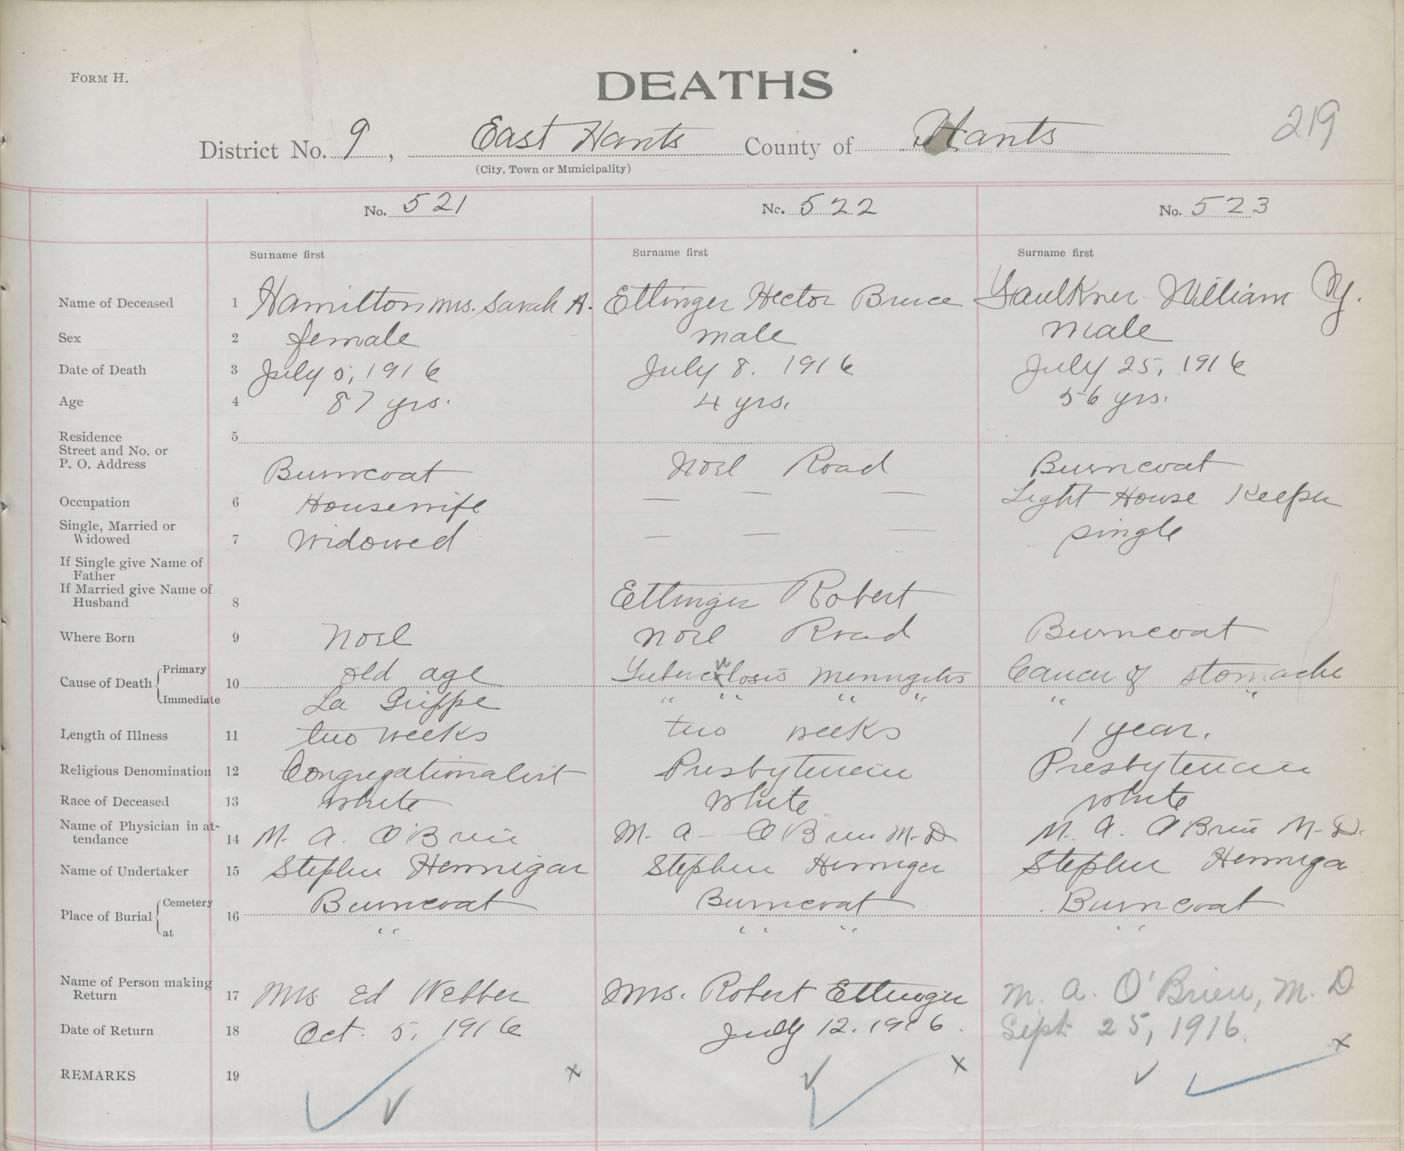 FORM H.
DEATHS
219
District No. 9, East Hants County of Hants
(City, Town or Municipality)
No. 521 No. 522 No. 523
Surname first Surname first Surname first
Name of Deceased 1 Hamilton Mrs. Sarah A. Ettinger Hector Bruce Faulkner William Y.
Sex 2 female male male
Date of Death 3 July 1916 July 8. 1916 July 25, 1916
Age 4 87 yrs. 4 yrs. 56 yrs.
Residence 5
Street and No. or
P. O. Address
Burncoat Noel Road Burncoat
Occupation 6 Housewife — — — Light House Keeper
Single, Married or
Widowed 7 Widowed — — — single
If Single give Name of
Father
If Married give Name of
Husband 8 Ettinger Robert
Where Born 9 Noel Noel Road Burncoat
Cause of Death Primary 10 old age Tuberculosis Meningitis Cancer of stomache
Immediate La Grippe " " " " " "
Length of Illness 11 two weeks two weeks 1 year.
Religious Denomination 12 Congregationalist Presbyterian Presbyterian
Race of Deceased 13 white White white
Name of Physician in at-
tendance 14 M. A. O'Brien M. A. O'Brien M.D M. A. O'Brien M.D.
Name of Undertaker 15 Stephen Hennigar Stephen Hennigar Stephen Henniga
Place of Burial Cemetery 16 Burncoat Burncoat Burncoat
at " " " "
Name of Person making
Return 17 Mrs Ed Webber Mrs. Robert Ettinger M. A. O'Brien, M. D
Date of Return 18 Oct. 5, 1916 July 12. 1916. Sept 25, 1916.
REMARKS 19 x x x